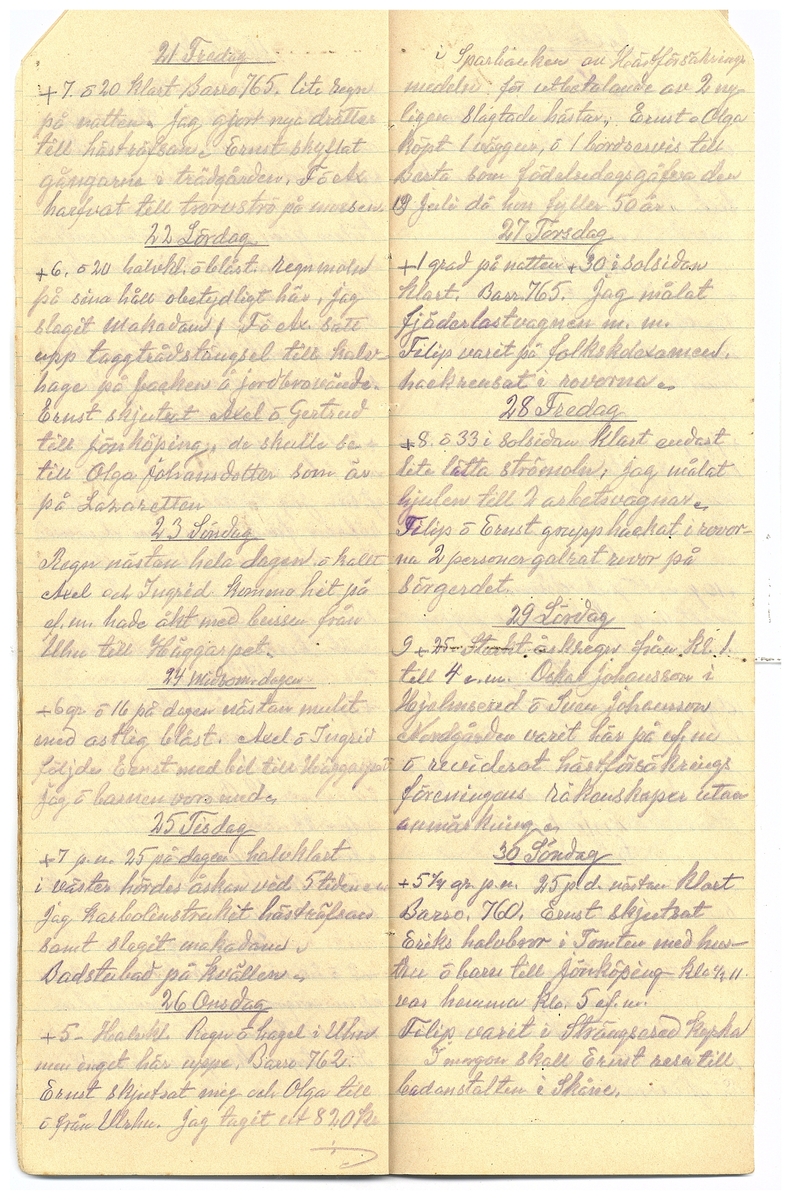 21 Fredag
+7. ō 20 klart Barro 765. lite regn
på natten. Jag gjort nya drätter
till hästräfsan. Ernst skyflat
gångarne i trädgården. F ō Ax
harfvat till torvströ på mossen
22 Lördag
+6. ō 20 halvkl. ō blåst. regnmoln
på sina håll obetydligt här, jag
slagit Makadam, F ō Ax. satt
upp taggtrådstängsel till kalv-
hage på backen å jordbrovände.
Ernst skjutsat Axel ō Gertrud
till Jönköping, de skulle be
till Olga Johansdotter som är
på Lazaretten
23 Söndag
Regn nästan hela dagen ō kallt
Axel och Ingrid komma hit på
ef.m. hade åkt med bussen från
Ulhn till Häggarpet.
24 Midsom.dagen
+6 gr ō 16 på dagen nästan mulit
med ostlig blåst. Axel ō Ingrid
följde Ernst med bil till Häggarpet
jag ō barnen voro med.
25 Tisdag
+7 p.n. 25 på dagen halvklart
i väster hördes åskan ved 5 tiden
Jag karbolinstrukit hästräfsan
samt slagit makadam.
Badstubad på kvällen.
26 Onsdag
+5 - Halvkl. Regn ō hagel i Ulhn
men inget här uppe. Barro 762.
Ernst skjutsat mig och Olga till
ō från Ulrhn. Jag tagit ut 820 Kr
i Sparbanken av Hästförsäkrings
medeln för utbetalande av 2 ny-
ligen slagtade hästar, Ernst o Olga
köpt 1 väggur, ō 1 bordservis till
Berta som födelsedagsgåfva den
19 Juli då hon fyller 50 år.
27 Torsdag
+1 grad på natten +30 i solsidan
Klart. Barr. 765. Jag målat
fjäderlastvagnen m. m.
Filip varit på folkskolexamen.
hackrensat i rovorna.
28 Fredag
+8. ō 33 i solsidan Klart endast
lite lätta strömoln, jag målat
hjulen till 2 arbetsvagnar.
Filip ō Ernst grupphackat i rovor-
na 2 personer galrat rovor på
Sörgerdet.
29 Lördag
9 + 25 åskregn från kl. 1.
till 4 e.m. Oskar Johansson i
Hjelmsered ō Sven Johansson
Nordgården varit här på ef.m
ō reviderat hästförsäkrings
föreningens räkenskaper utan
anmärkning.
30 Söndag
+5 1/4 gr. p.n. 25 p.d. nästan klart
Barro. 760. Ernst skjutsat
Eriks halvbror i Tomten med hus-
tru ō barn till Jönköping
var hemma kla. 5 ef. m.
Filip varit i Strängsered Kyrka
I morgon skall Ernst resa till
badanstalten i Skåne.